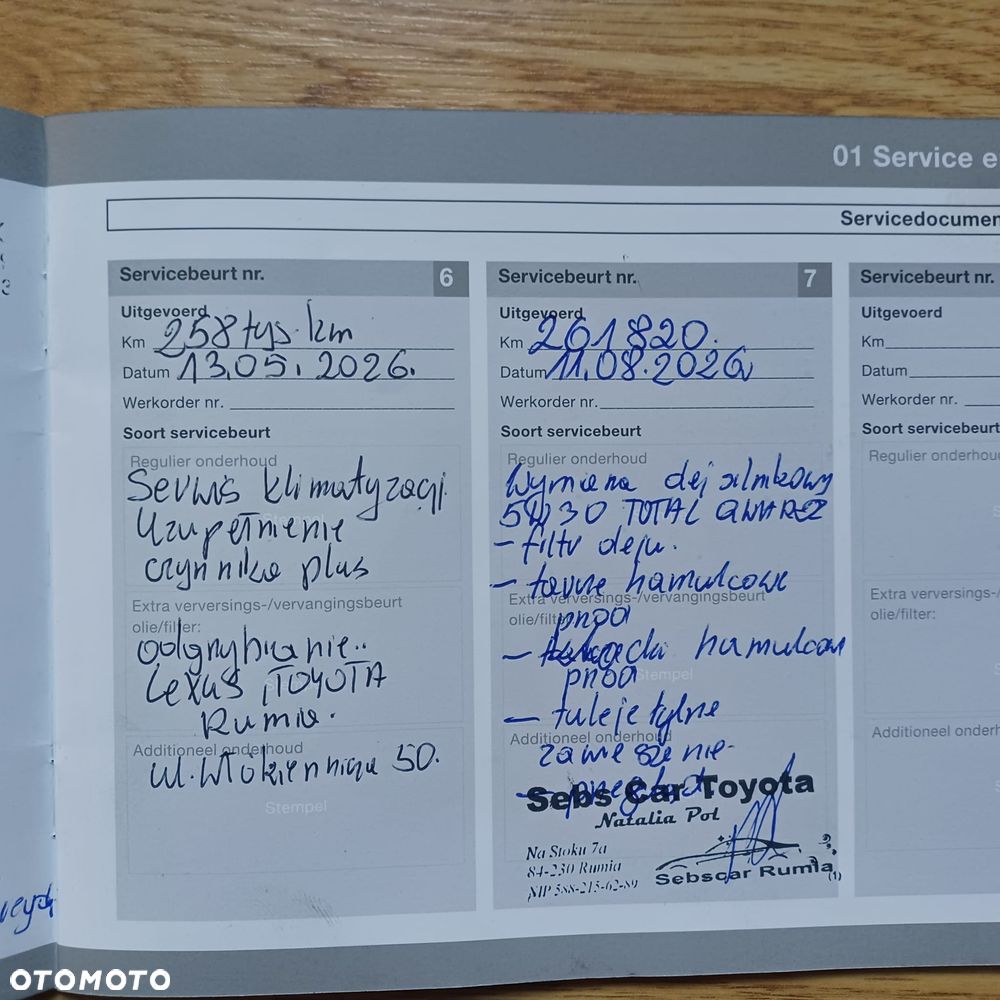 01 Service e
Servicedocumen
Servicebeurt nr. 6
Uitgevoerd
Km 258 tys. km
Datum 13.05.2026.
Werkorder nr.
Soort servicebeurt
Regulier onderhoud
Serwis klimatyzacji
Uzupełnienie
czynnika plus
Extra verversings-/vervangingsbeurt
olie/filter:
odgrybianie..
Lexus, TOYOTA
Rumia.
Additioneel onderhoud
ul. Włókiennicza 50.
Stempel
Servicebeurt nr. 7
Uitgevoerd
Km 261820.
Datum 11.08.2026
Werkorder nr.
Soort servicebeurt
Regulier onderhoud
Wymiana olej silnikowy
5W30 TOTAL QUAREZ
- filtr oleju.
- tarcze hamulcowe
Extra verversings-/vervangingsbeurt
przód
olie/filter:
- hamulcowe
przód
Stempel
- tuleje tylne
Additioneel onderhoud
zawieszenie
- przegląd
Sebs Car Toyota
Natalia Pol
Na Stoku 7a
84-230 Rumia
NIP 588-215-62-89
Sebscar Rumia
(1)
Servicebeurt nr.
Uitgevoerd
Km
Datum
Werkorder nr.
Soort servicebeurt
Regulier onder
Extra verversings
olie/filter:
Additioneel onderh
OTOMOTO